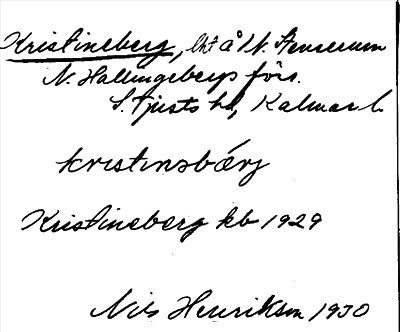 Kristineberg, lht å N. Stensemum
N. Hallingebergs förs.
S. Tjusts hd, Kalmar l.
kristinsbärj
Kristineberg kb 1929
Nils Henrikson 1930